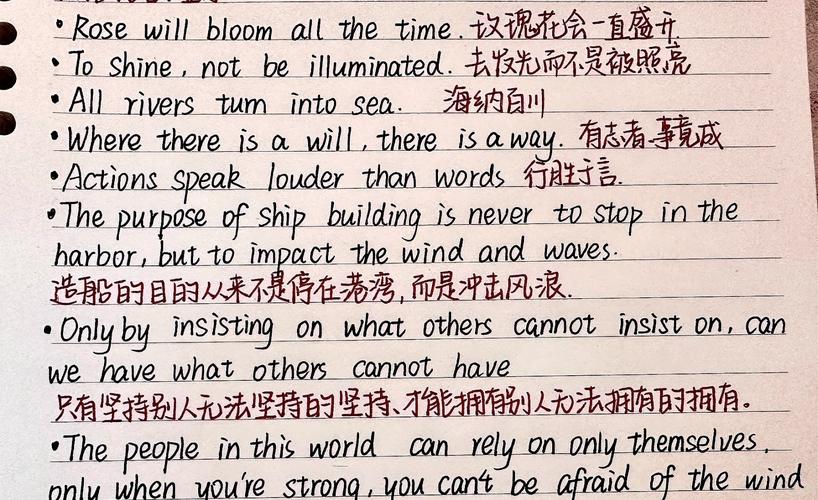 • Rose will bloom all the time. 玫瑰花会一直盛开.
• To shine, not be illuminated. 去发光而不是被照亮
• All rivers turn into sea. 海纳百川
• Where there is a will, there is a way. 有志者事竟成
• Actions speak louder than words 行胜于言.
• The purpose of ship building is never to stop in the
harbor, but to impact the wind and waves.
造船的目的从来不是停在港湾,而是冲击风浪.
• Only by insisting on what others cannot insist on, can
we have what others cannot have
只有坚持别人无法坚持的坚持、才能拥有别人无法拥有的拥有。
• The people in this world can rely on only themselves,
only when you're strong, you can't be afraid of the wind